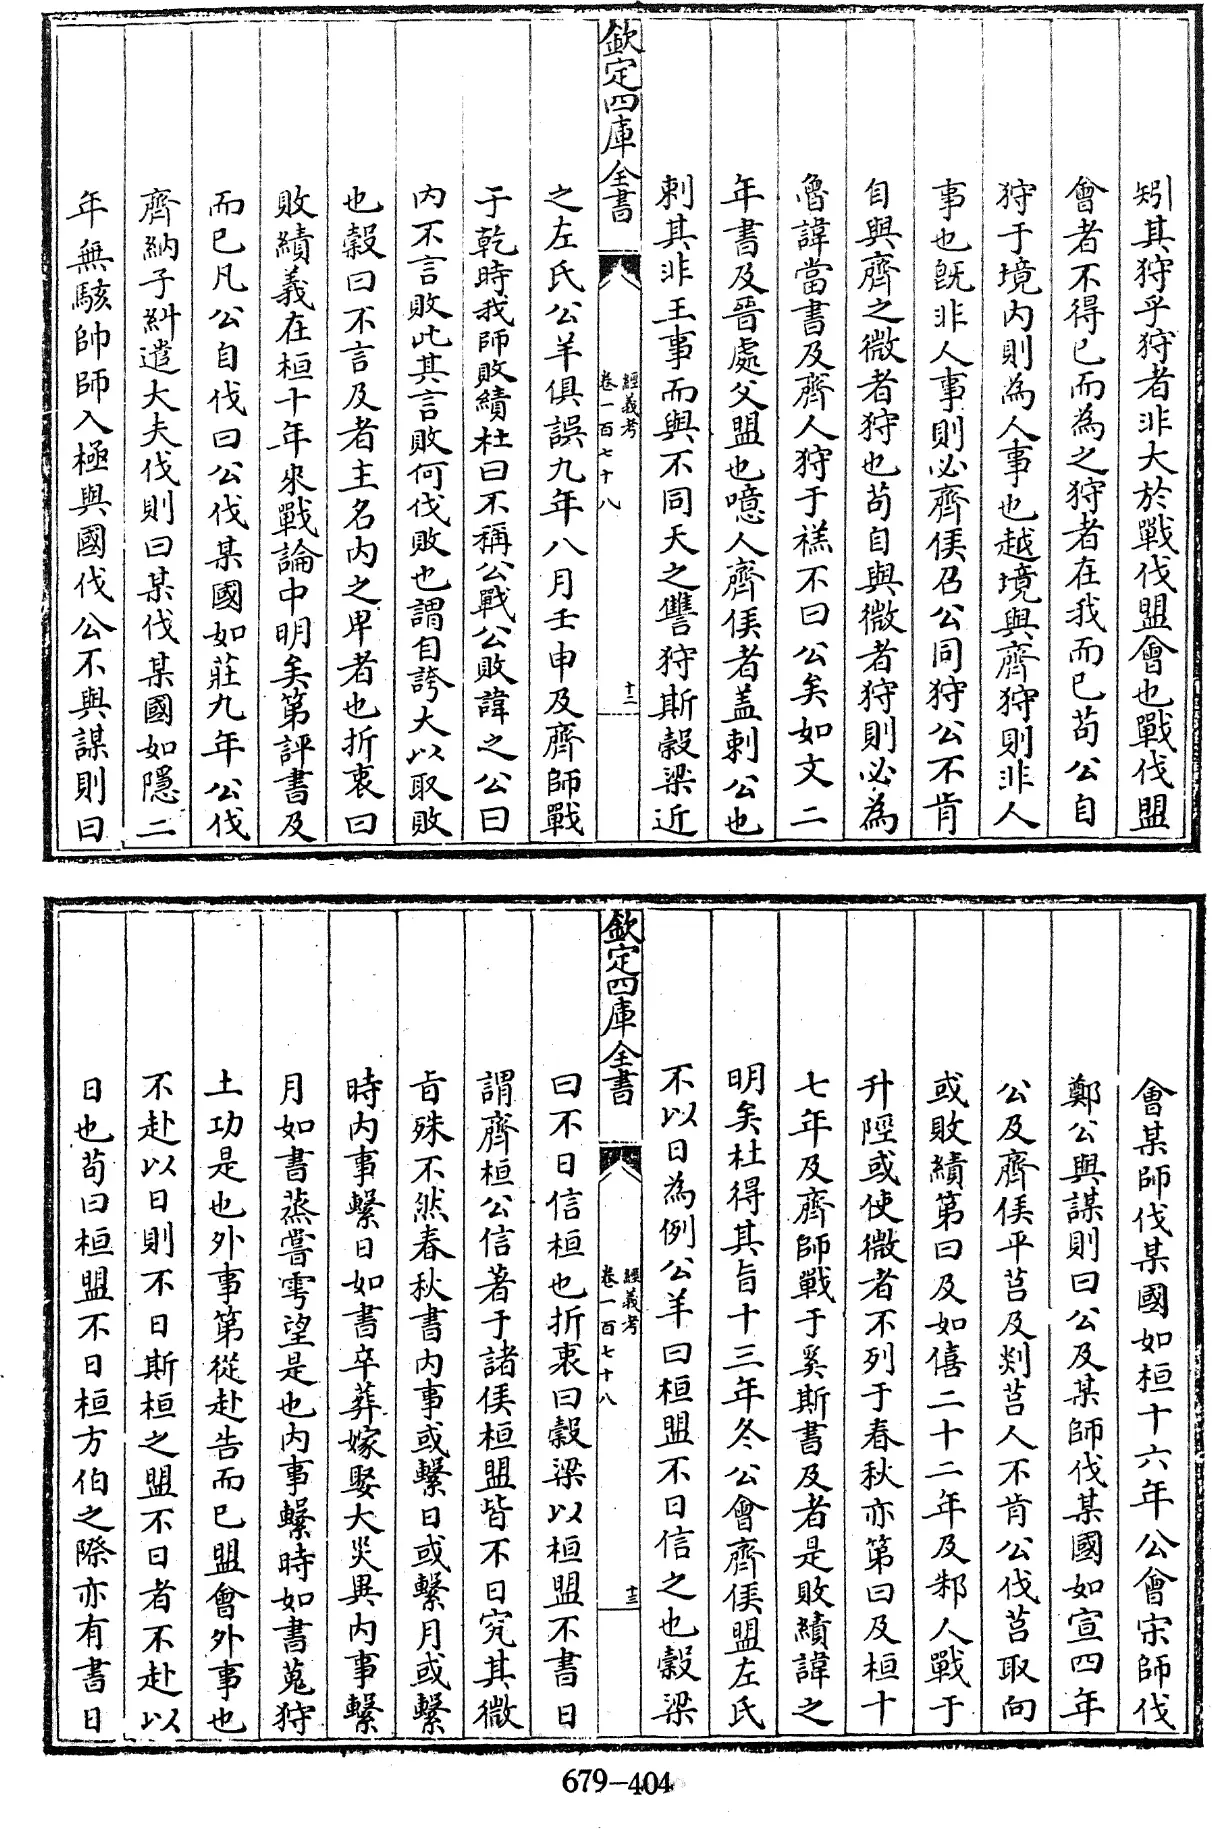 矧其狩乎狩者非大於戰伐盟會也戰伐盟
會者不得已而為之狩者在我而已茍公自
狩于境内則為人事也越境與齊狩則非人
事也旣非人事則必齊侯召公同狩公不肯
自與齊之微者狩也茍自與微者狩則必為
魯諱當書及齊人狩于禚不曰公矣如文二
年書及晉處父盟也噫人齊侯者盖刺公也
刺其非王事而與不同天之讐狩斯榖梁近
欽定四庫全書
經義考
卷一百七十八
十二
之左氏公羊俱誤九年八月壬申及齊師戰
于乾時我師敗績杜曰不稱公戰公敗諱之公曰
内不言敗此其言敗何伐敗也謂自誇大以取敗
也榖曰不言及者主名内之卑者也折衷曰
敗績義在桓十年來戰論中明矣第評書及
而已凡公自伐曰公伐某國如莊九年公伐
齊納子糾遣大夫伐則曰某伐某國如隱二
年無駭帥師入極與國伐公不與謀則曰
會某師伐某國如桓十六年公會宋師伐
鄭公與謀則曰公及某師伐某國如宣四年
公及齊侯平莒及郯莒人不肯公伐莒取向
或敗績第曰及如僖二十二年及邾人戰于
升陘或使微者不列于春秋亦第曰及桓十
七年及齊師戰于奚斯書及者是敗績諱之
明矣杜得其旨十三年冬公會齊侯盟左氏
不以日為例公羊曰桓盟不日信之也榖梁
欽定四庫全書
經義考
卷一百七十八
十三
曰不日信桓也折衷曰榖梁以桓盟不書日
謂齊桓公信著于諸侯桓盟皆不日究其微
旨殊不然春秋書内事或繫日或繫月或繫
時内事繫日如書卒葬嫁娶大災異内事繫
月如書蒸嘗雩望是也内事繫時如書蒐狩
土功是也外事第從赴告而已盟會外事也
不赴以日則不日斯桓之盟不日者不赴以
日也茍曰桓盟不日桓方伯之際亦有書日
679-404